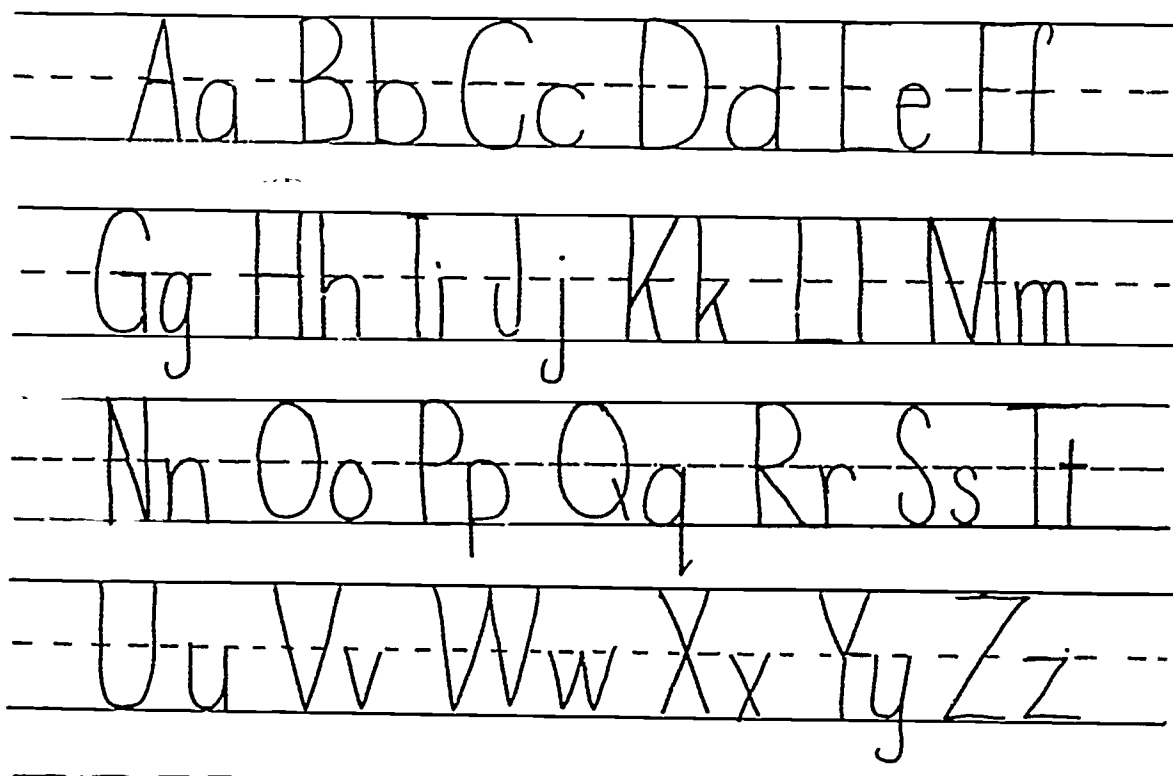 Aa Bb Cc Dd Ee Ff
Gg Hh Ii Jj Kk Ll Mm
Nn Oo Pp Qq Rr Ss Tt
Uu Vv Ww Xx Yy Zz